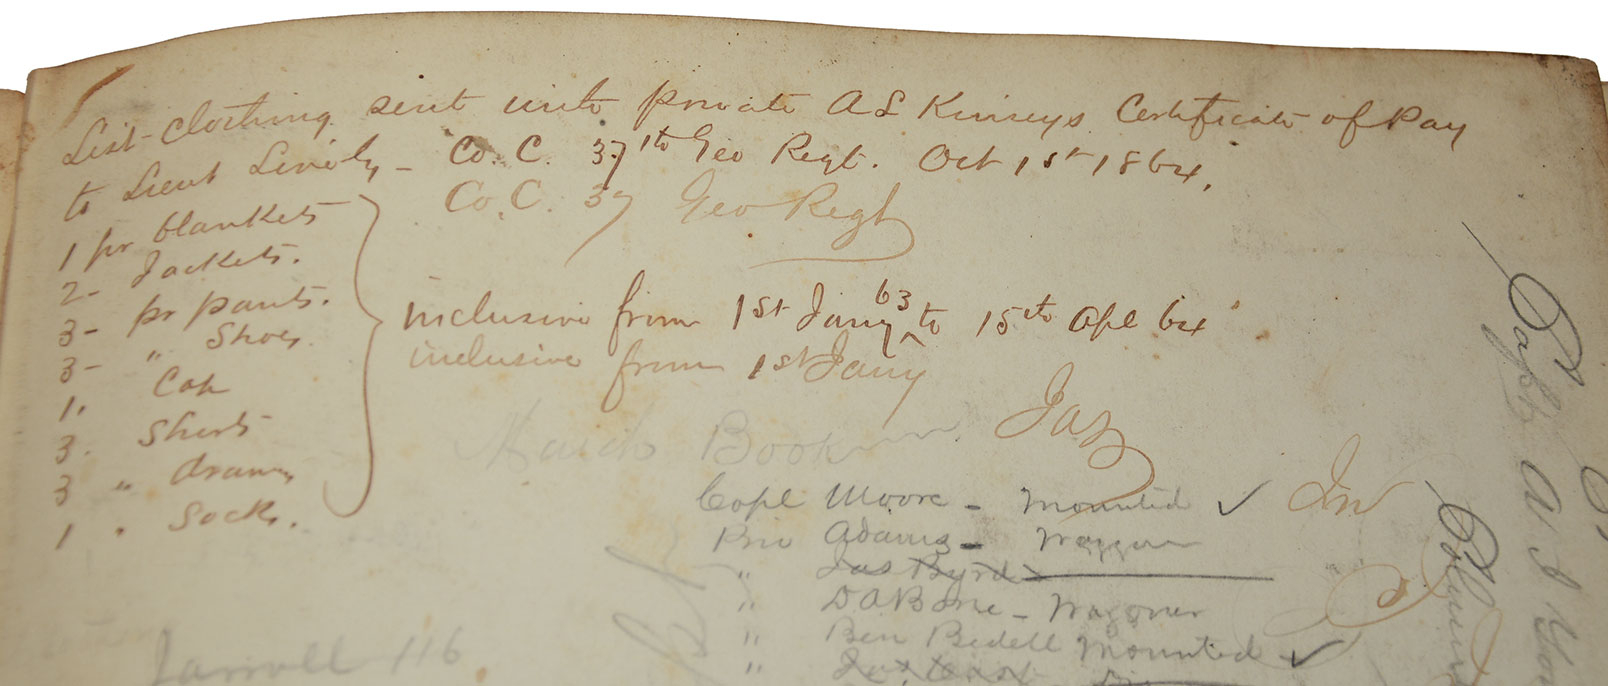 List clothing sent with private A L Kinseys Certificate of Pay
to Lieut Lively - Co. C. 37th Geo Regt. Oct 1st 1864.
Co. C. 37 Geo Regt
1 pr blankets
2- Jackets.
3- pr pants.
3- " Shoes.
1. " Cap
3. Shirts
3 " drawrs
1 " Socks.
inclusive from 1st Jany 63 to 15th Apl 64
inclusive from 1st Jany
Jas
March Book
Copl Moore - Mounted ✓
Jno
Priv Adams - Waggoner
" Jas Byrd
" D A Bone - Waggoner
" Ben Bedell Mounted ✓
" Jas East
Jarroll 116
Capt A S